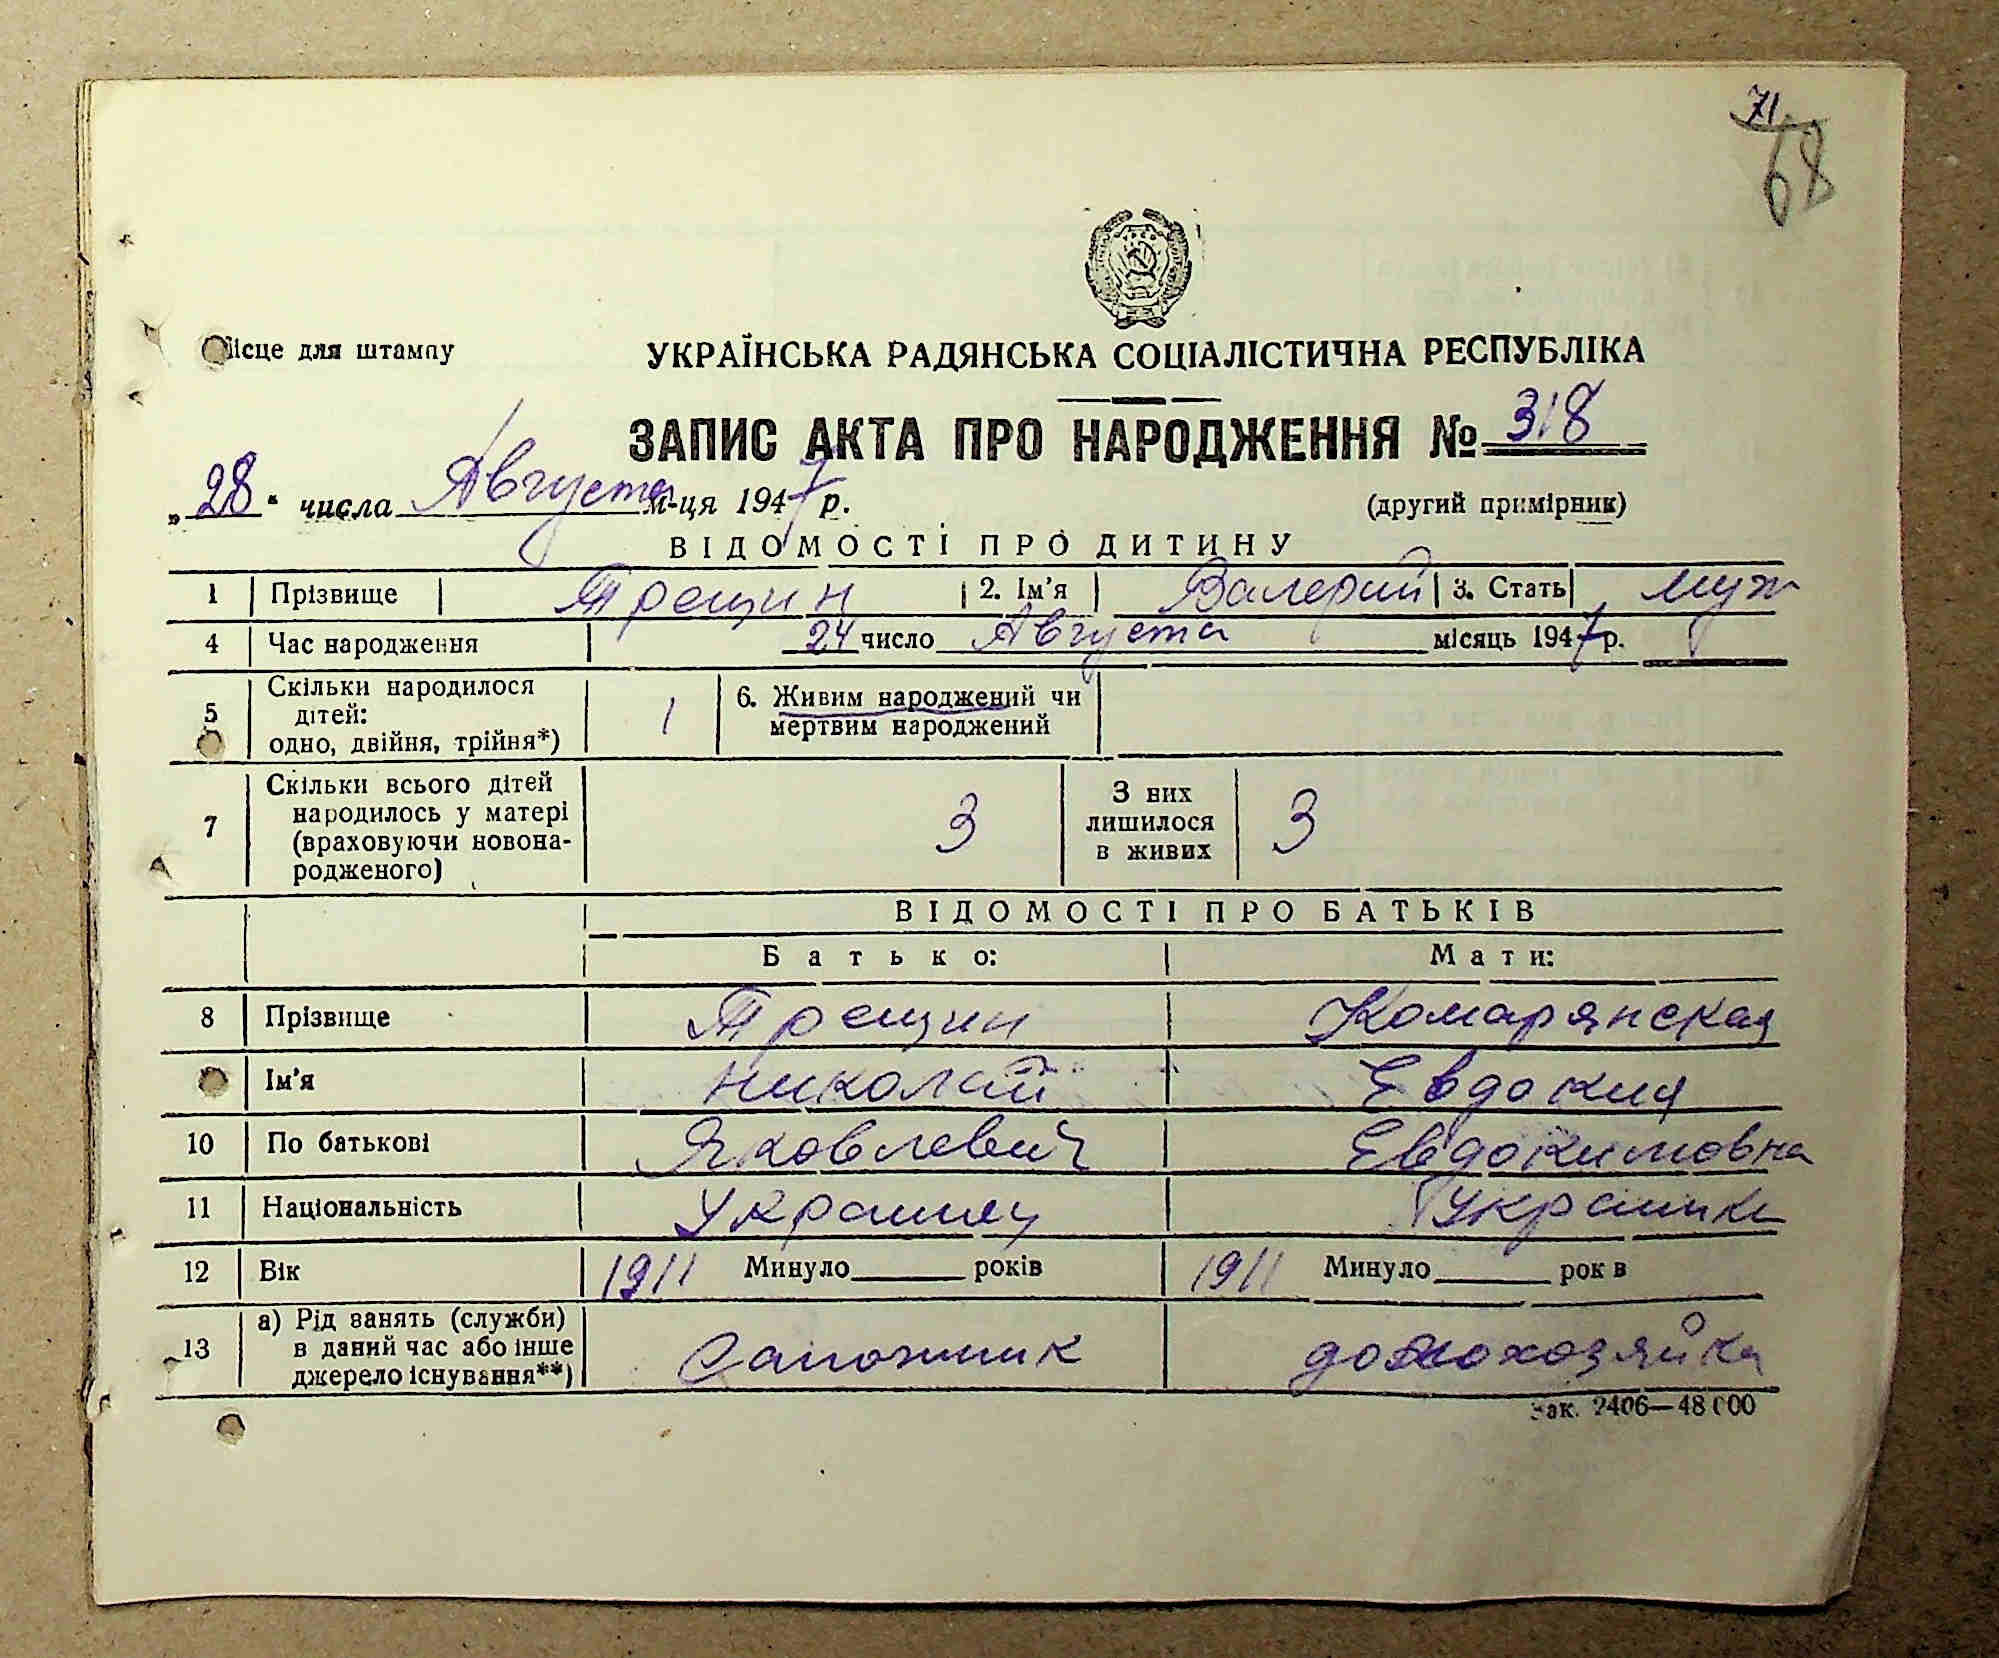 71
68
Місце для штампу
УКРАЇНСЬКА РАДЯНСЬКА СОЦІАЛІСТИЧНА РЕСПУБЛІКА
ЗАПИС АКТА ПРО НАРОДЖЕННЯ № 318
„28“ числа Августа м-ця 1947 р. (другий примірник)
ВІДОМОСТІ ПРО ДИТИНУ
1 Прізвище Трещин 2. Ім'я Валерий 3. Стать муж
4 Час народження 24 число Августа місяць 1947 р.
5 Скільки народилося дітей: одно, двійня, трійня*) 1 6. Живим народжений чи мертвим народжений
7 Скільки всього дітей народилось у матері (враховуючи новонародженого) 3 З них лишилося в живих 3
ВІДОМОСТІ ПРО БАТЬКІВ
Батько: Мати:
8 Прізвище Трещин Комарянская
Ім'я Николай Евдокия
10 По батькові Яковлевич Евдокимовна
11 Національність Украинец Украинка
12 Вік 1911 Минуло років 1911 Минуло рок в
13 а) Рід занять (служби) в даний час або інше джерело існування**) Сапожник домохозяйка
Зак. 2406—48000